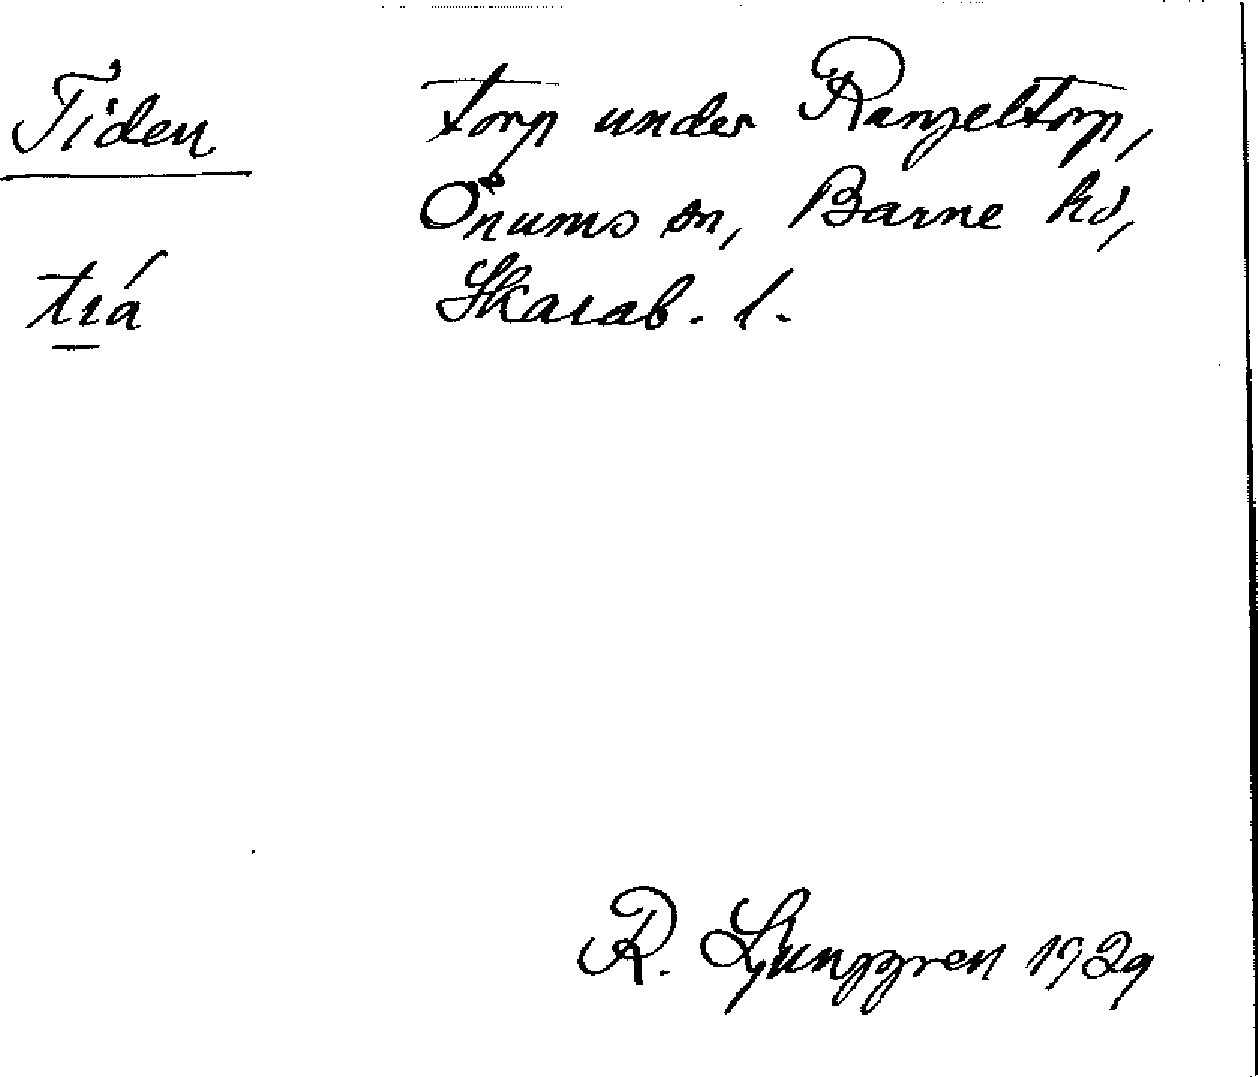 Tiden
torp under Rangeltorp,
Önums sn, Barne hd,
trá
Skarab. l.
R. Ljunggren 1929